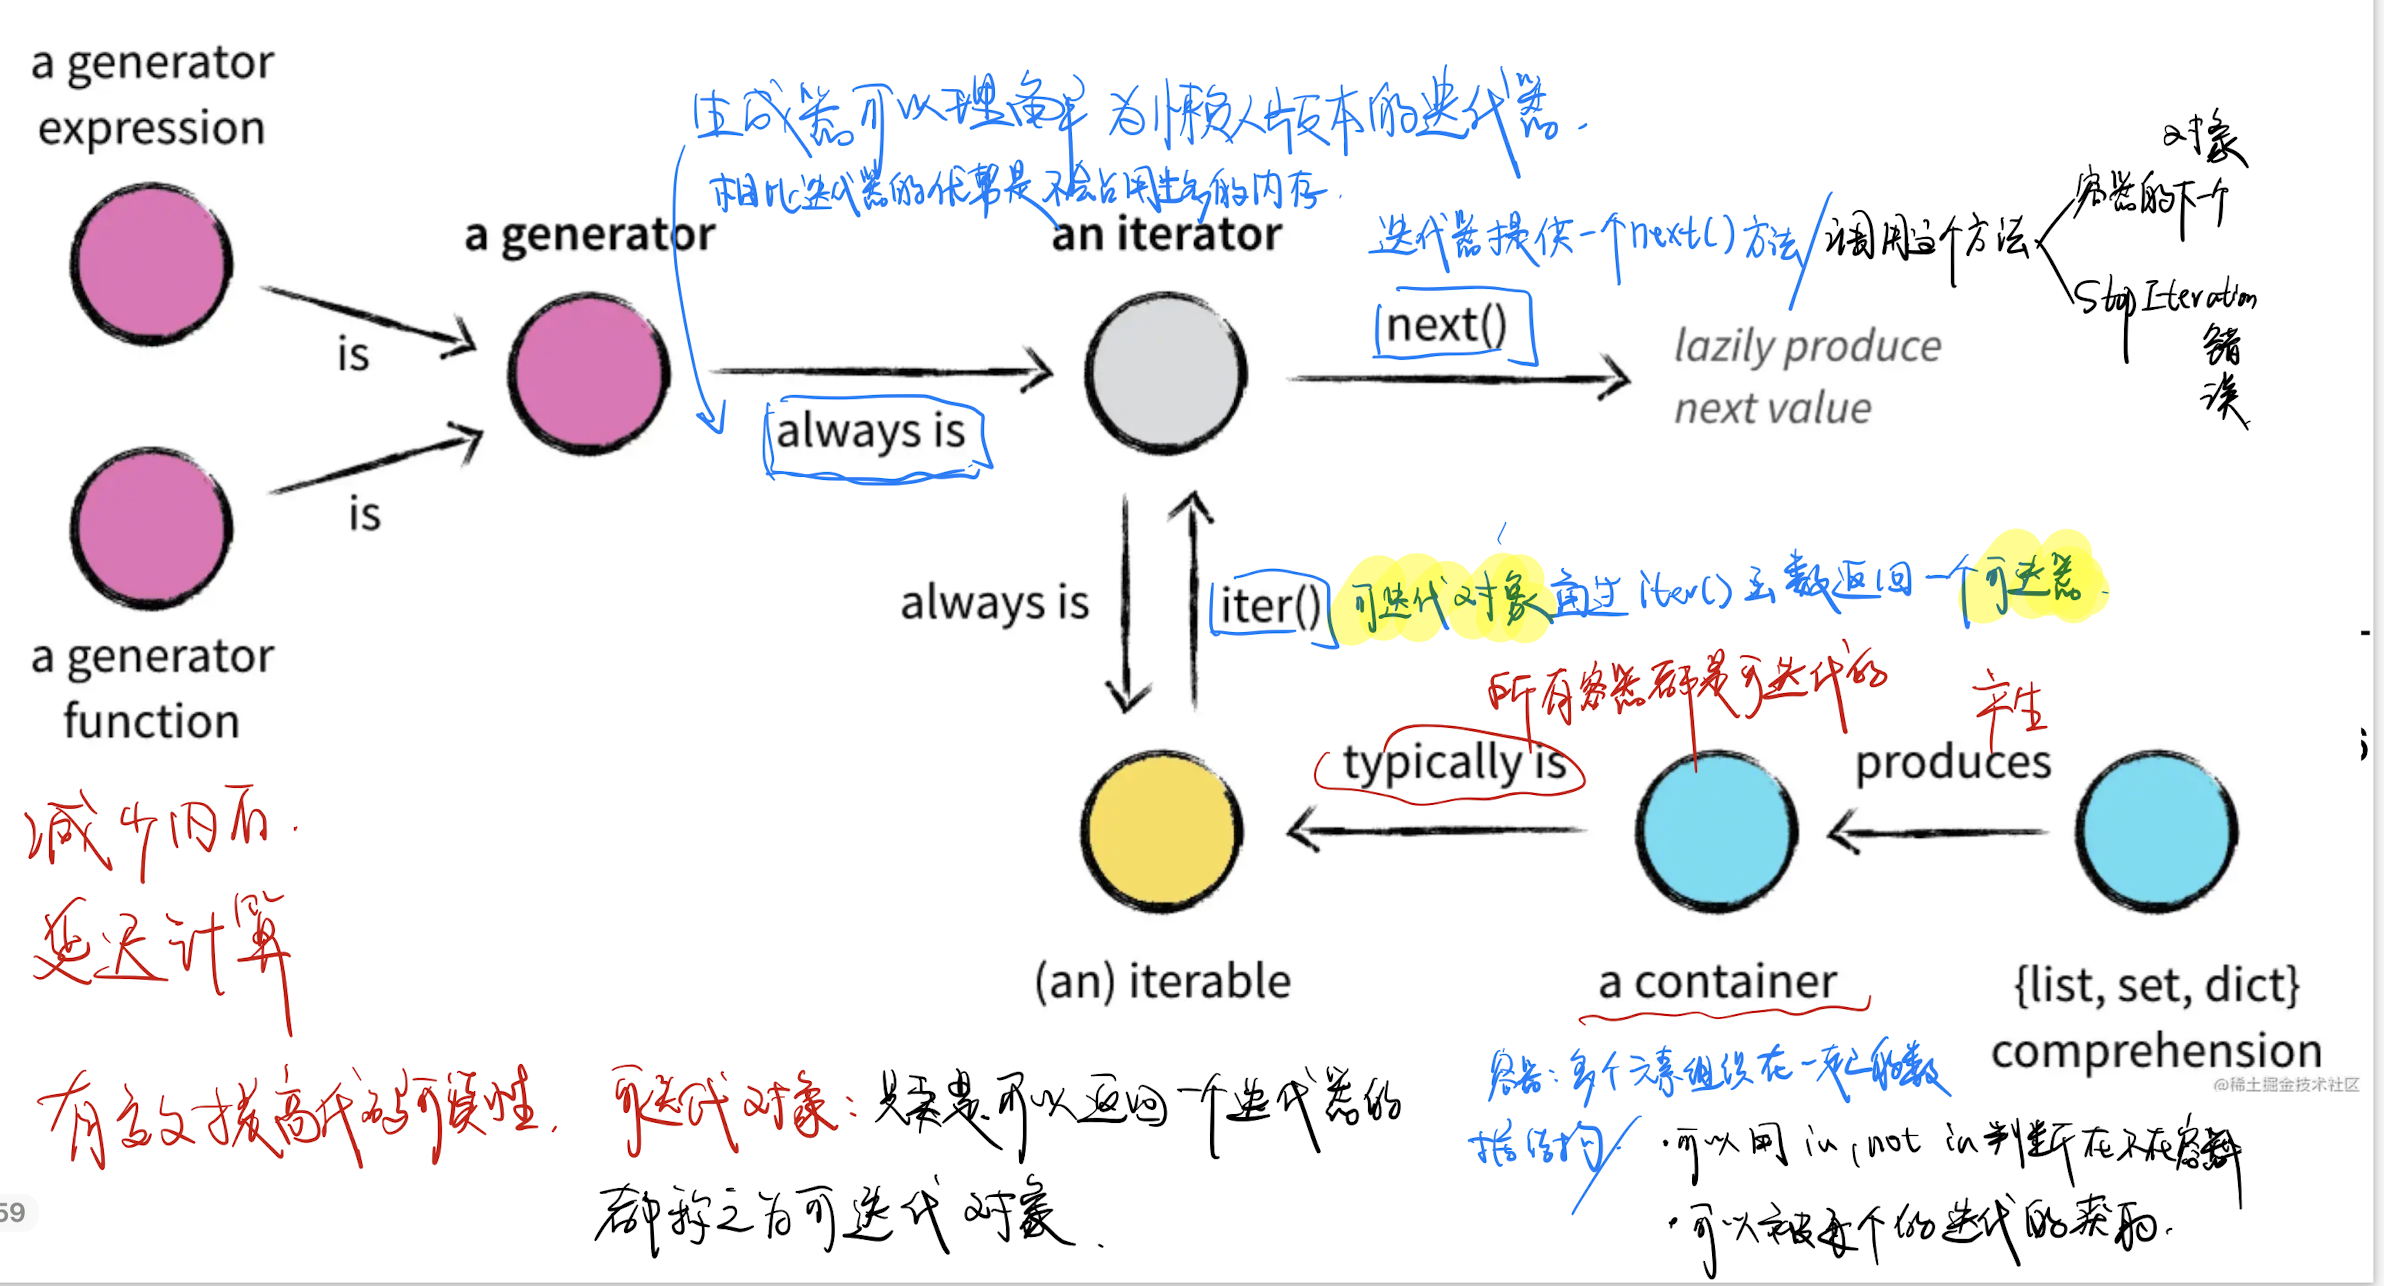 a generator
expression
生成器可以理解为懒人版本的迭代器.
相比迭代器的优势是不会占用的内存.
a generator
an iterator
迭代器提供一个next()方法/调用这个方法
对象
容器的下一个
StopIteration
错
误
is
next()
lazily produce
next value
always is
is
always is
iter()
可迭代对象通过iter()函数返回一个可迭器.
a generator
function
所有容器都是可迭代的
产生
typically is
produces
减少内存.
延迟计算
(an) iterable
a container
{list, set, dict}
comprehension
@稀土掘金技术社区
有效提高代码可读性.
可迭代对象:是可以返回一个迭代器的
都称之为可迭代对象.
容器:多个元素组织在一起的数
据结构/
·可以用in,not in判断在不在容器
·可以被逐个的迭代的获取.
59